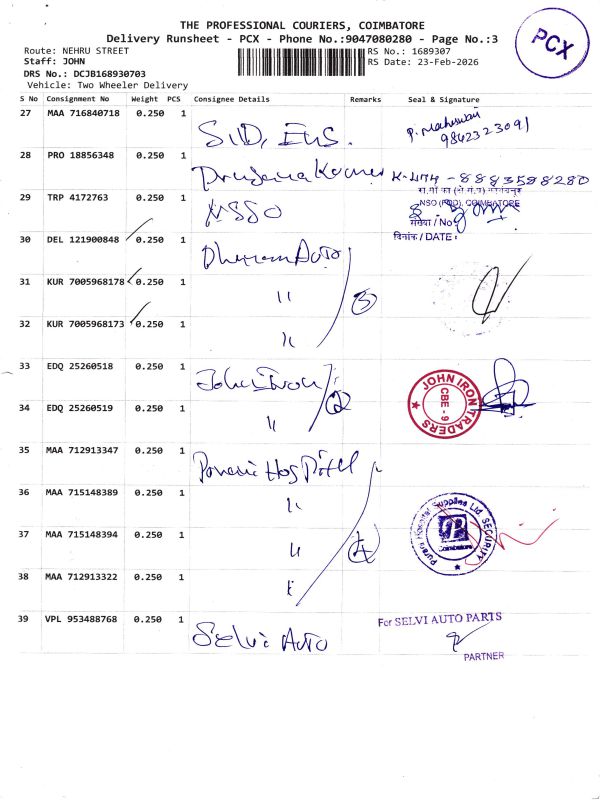 THE PROFESSIONAL COURIERS, COIMBATORE
Delivery Runsheet - PCX - Phone No.:9047080280 - Page No.:3
PCX
Route: NEHRU STREET
RS No.: 1689307
Staff: JOHN
RS Date: 23-Feb-2026
DRS No.: DCJB168930703
Vehicle: Two Wheeler Delivery
S No Consignment No Weight PCS Consignee Details Remarks Seal & Signature
27 MAA 716840718 0.250 1 P. Maheswari
9842323091
28 PRO 18856348 0.250 1 8883598280
29 TRP 4172763 0.250 1 NSSO
NSO (FOD), COIMBATORE
संख्या / No
दिनांक / DATE :
30 DEL 121900848 0.250 1 Auto
31 KUR 7005968178 0.250 1 "
3
32 KUR 7005968173 0.250 1 "
33 EDQ 25260518 0.250 1 John Iron
2
JOHN IRON TRADERS
CBE - 9
34 EDQ 25260519 0.250 1 "
35 MAA 712913347 0.250 1 Hospital
36 MAA 715148389 0.250 1 "
Purani Hospital Supplies Ltd. SECURITY
Coimbatore
37 MAA 715148394 0.250 1 "
4
38 MAA 712913322 0.250 1 "
39 VPL 953488768 0.250 1 Selvi Auto
For SELVI AUTO PARTS
PARTNER